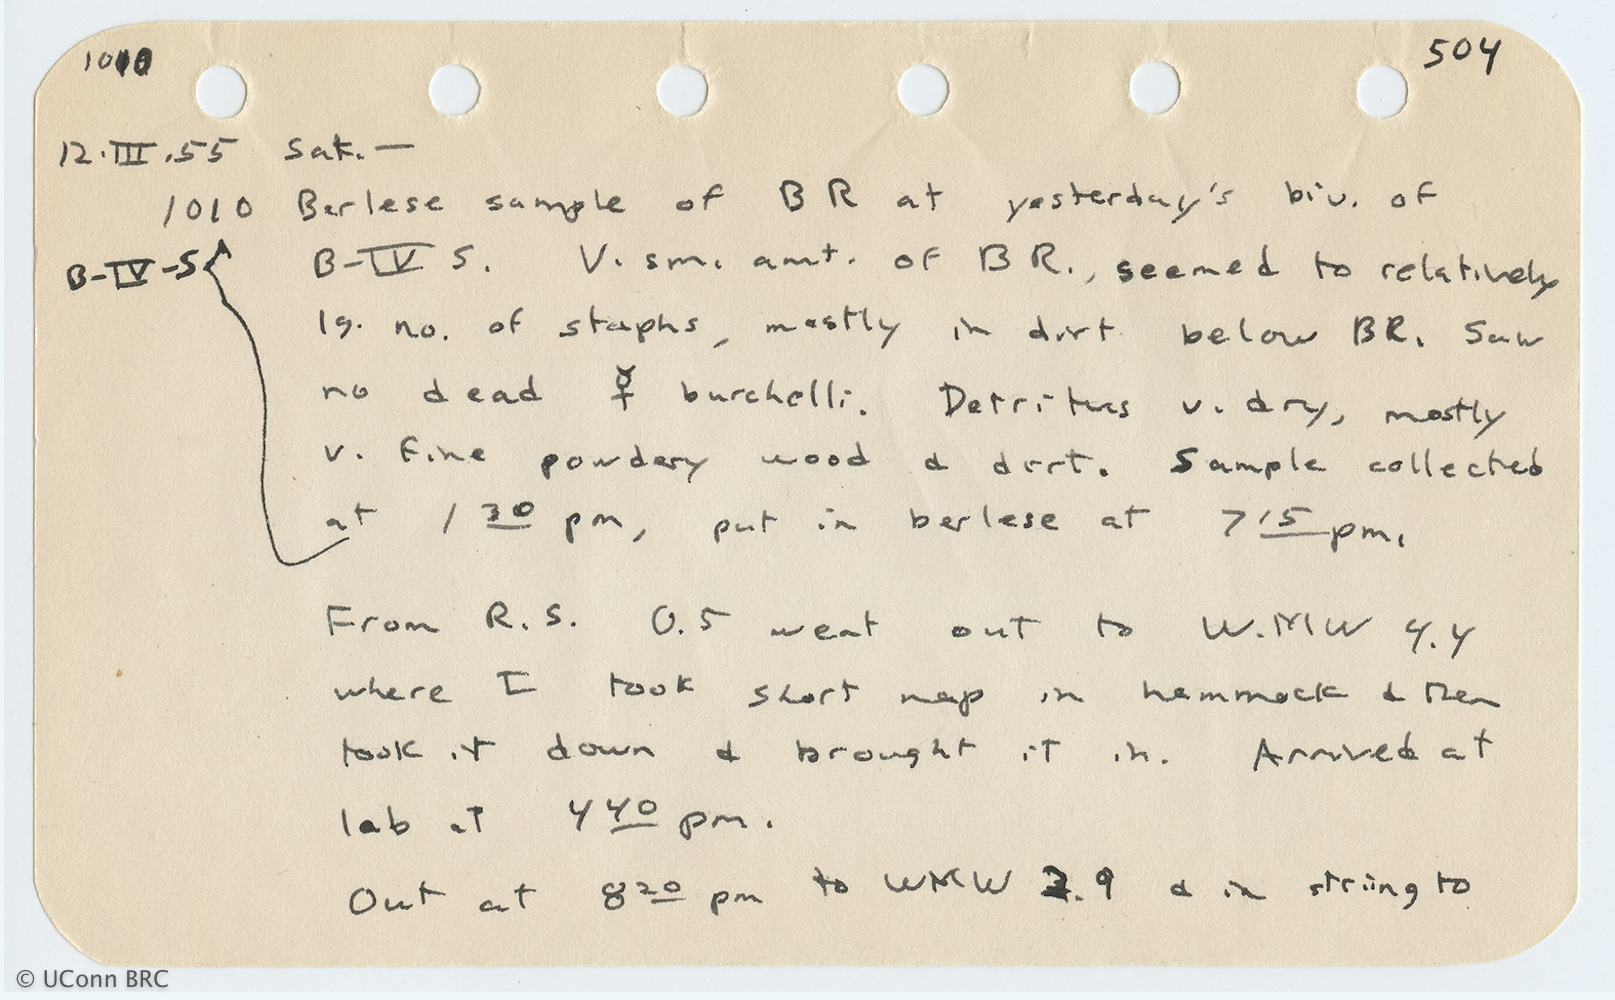 1010
504
12.III.55 Sat.—
1010 Berlese sample of BR at yesterday's biv. of
B-IV-S
B-IV S. V. sm. amt. of BR., seemed to relatively
lg. no. of staphs, mostly in dirt below BR. Saw
no dead ☿ burchelli. Detritus v. dry, mostly
v. fine powdery wood & dirt. Sample collected
at 1 30 pm, put in berlese at 7 15 pm.
From R.S. 0.5 went out to W.MW 4.4
where I took short nap in hammock & then
took it down & brought it in. Arrived at
lab at 4 40 pm.
Out at 8 20 pm to WMW 2.9 & in string to
© UConn BRC